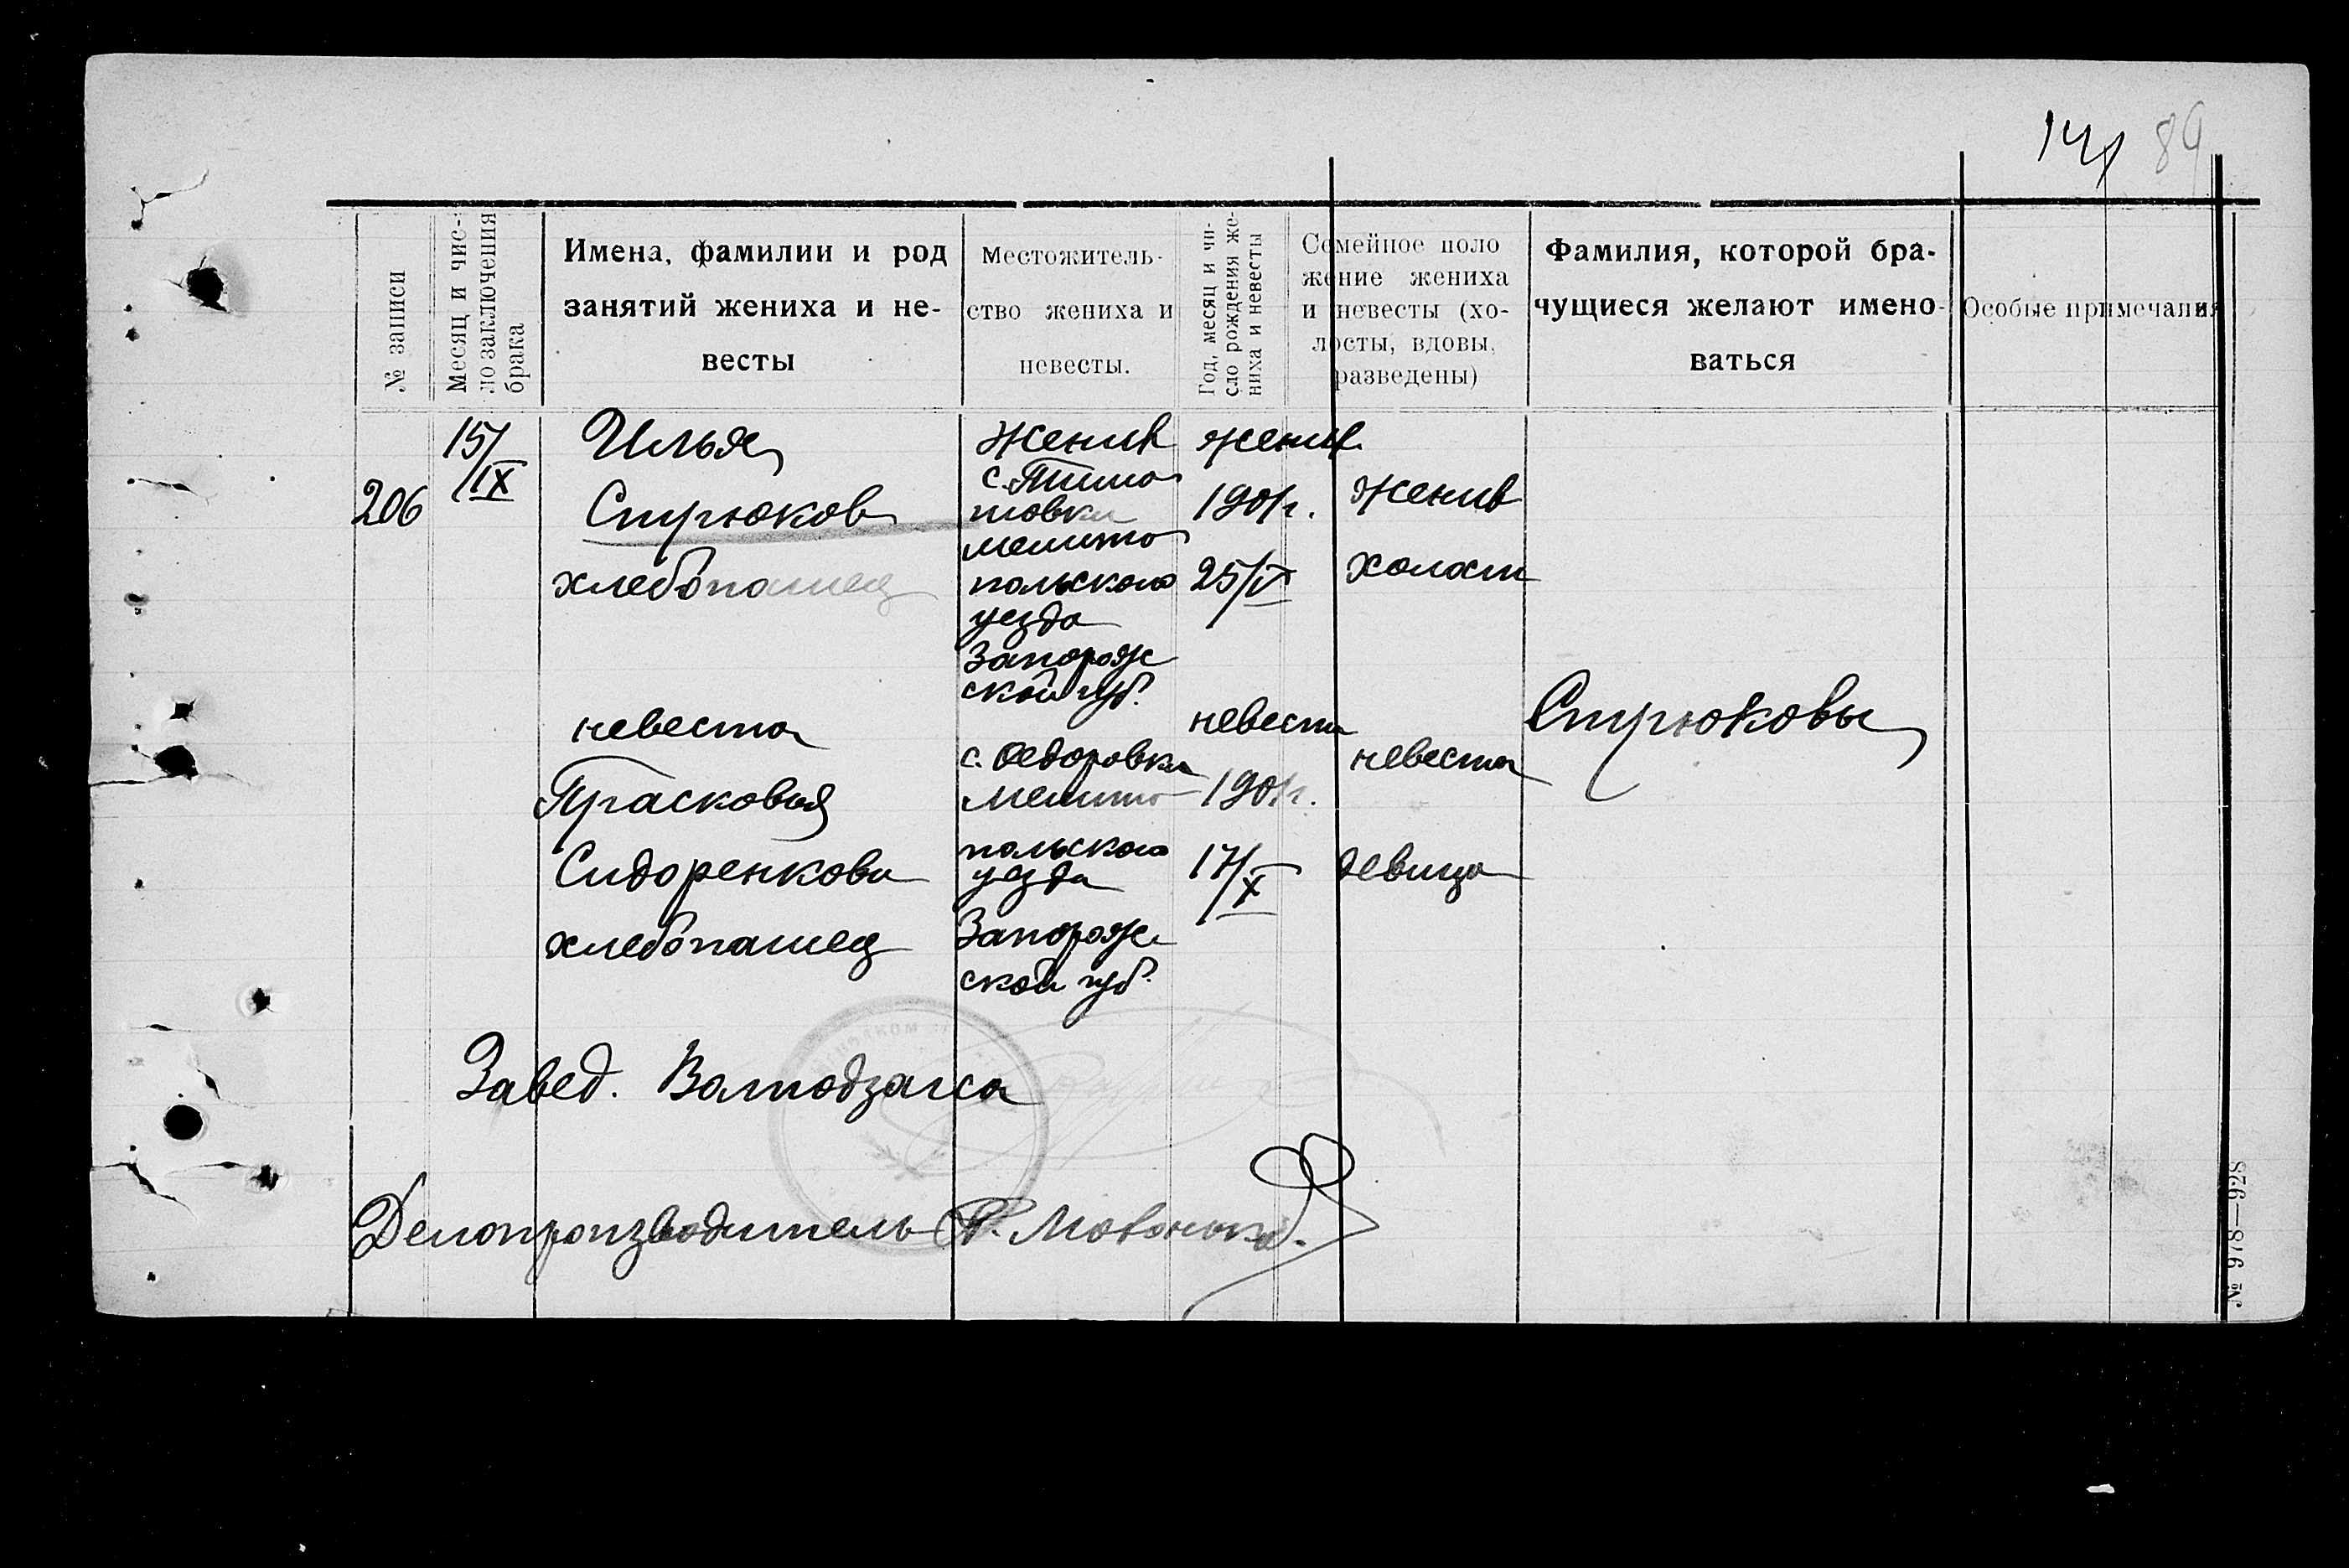 141 89
№ записи
Месяц и чис-
ло заключения
брака
Имена, фамилии и род
занятий жениха и не-
весты
Местожитель-
ство жениха и
невесты.
Год, месяц и чи-
сло рождения же-
ниха и невесты
Семейное поло
жение жениха
и невесты (хо-
лосты, вдовы,
разведены)
Фамилия, которой бра-
чущиеся желают имено-
ваться
Особые примечания
206
15/IX
Илья
Стрюков
хлебопашец
жених
с. Тимо
шовки
мелито
польского
уезда
Запорож
ской губ.
жених
1901г.
25/V
жених
холост
невеста
Прасковья
Сидоренкова
хлебопашец
с. Федоровки
мелито
польского
уезда
Запорож
ской губ.
невеста
1901г.
17/X
невеста
девица
Стрюковы
Завед. Волподзагса
Делопроизводитель
№ 978—928